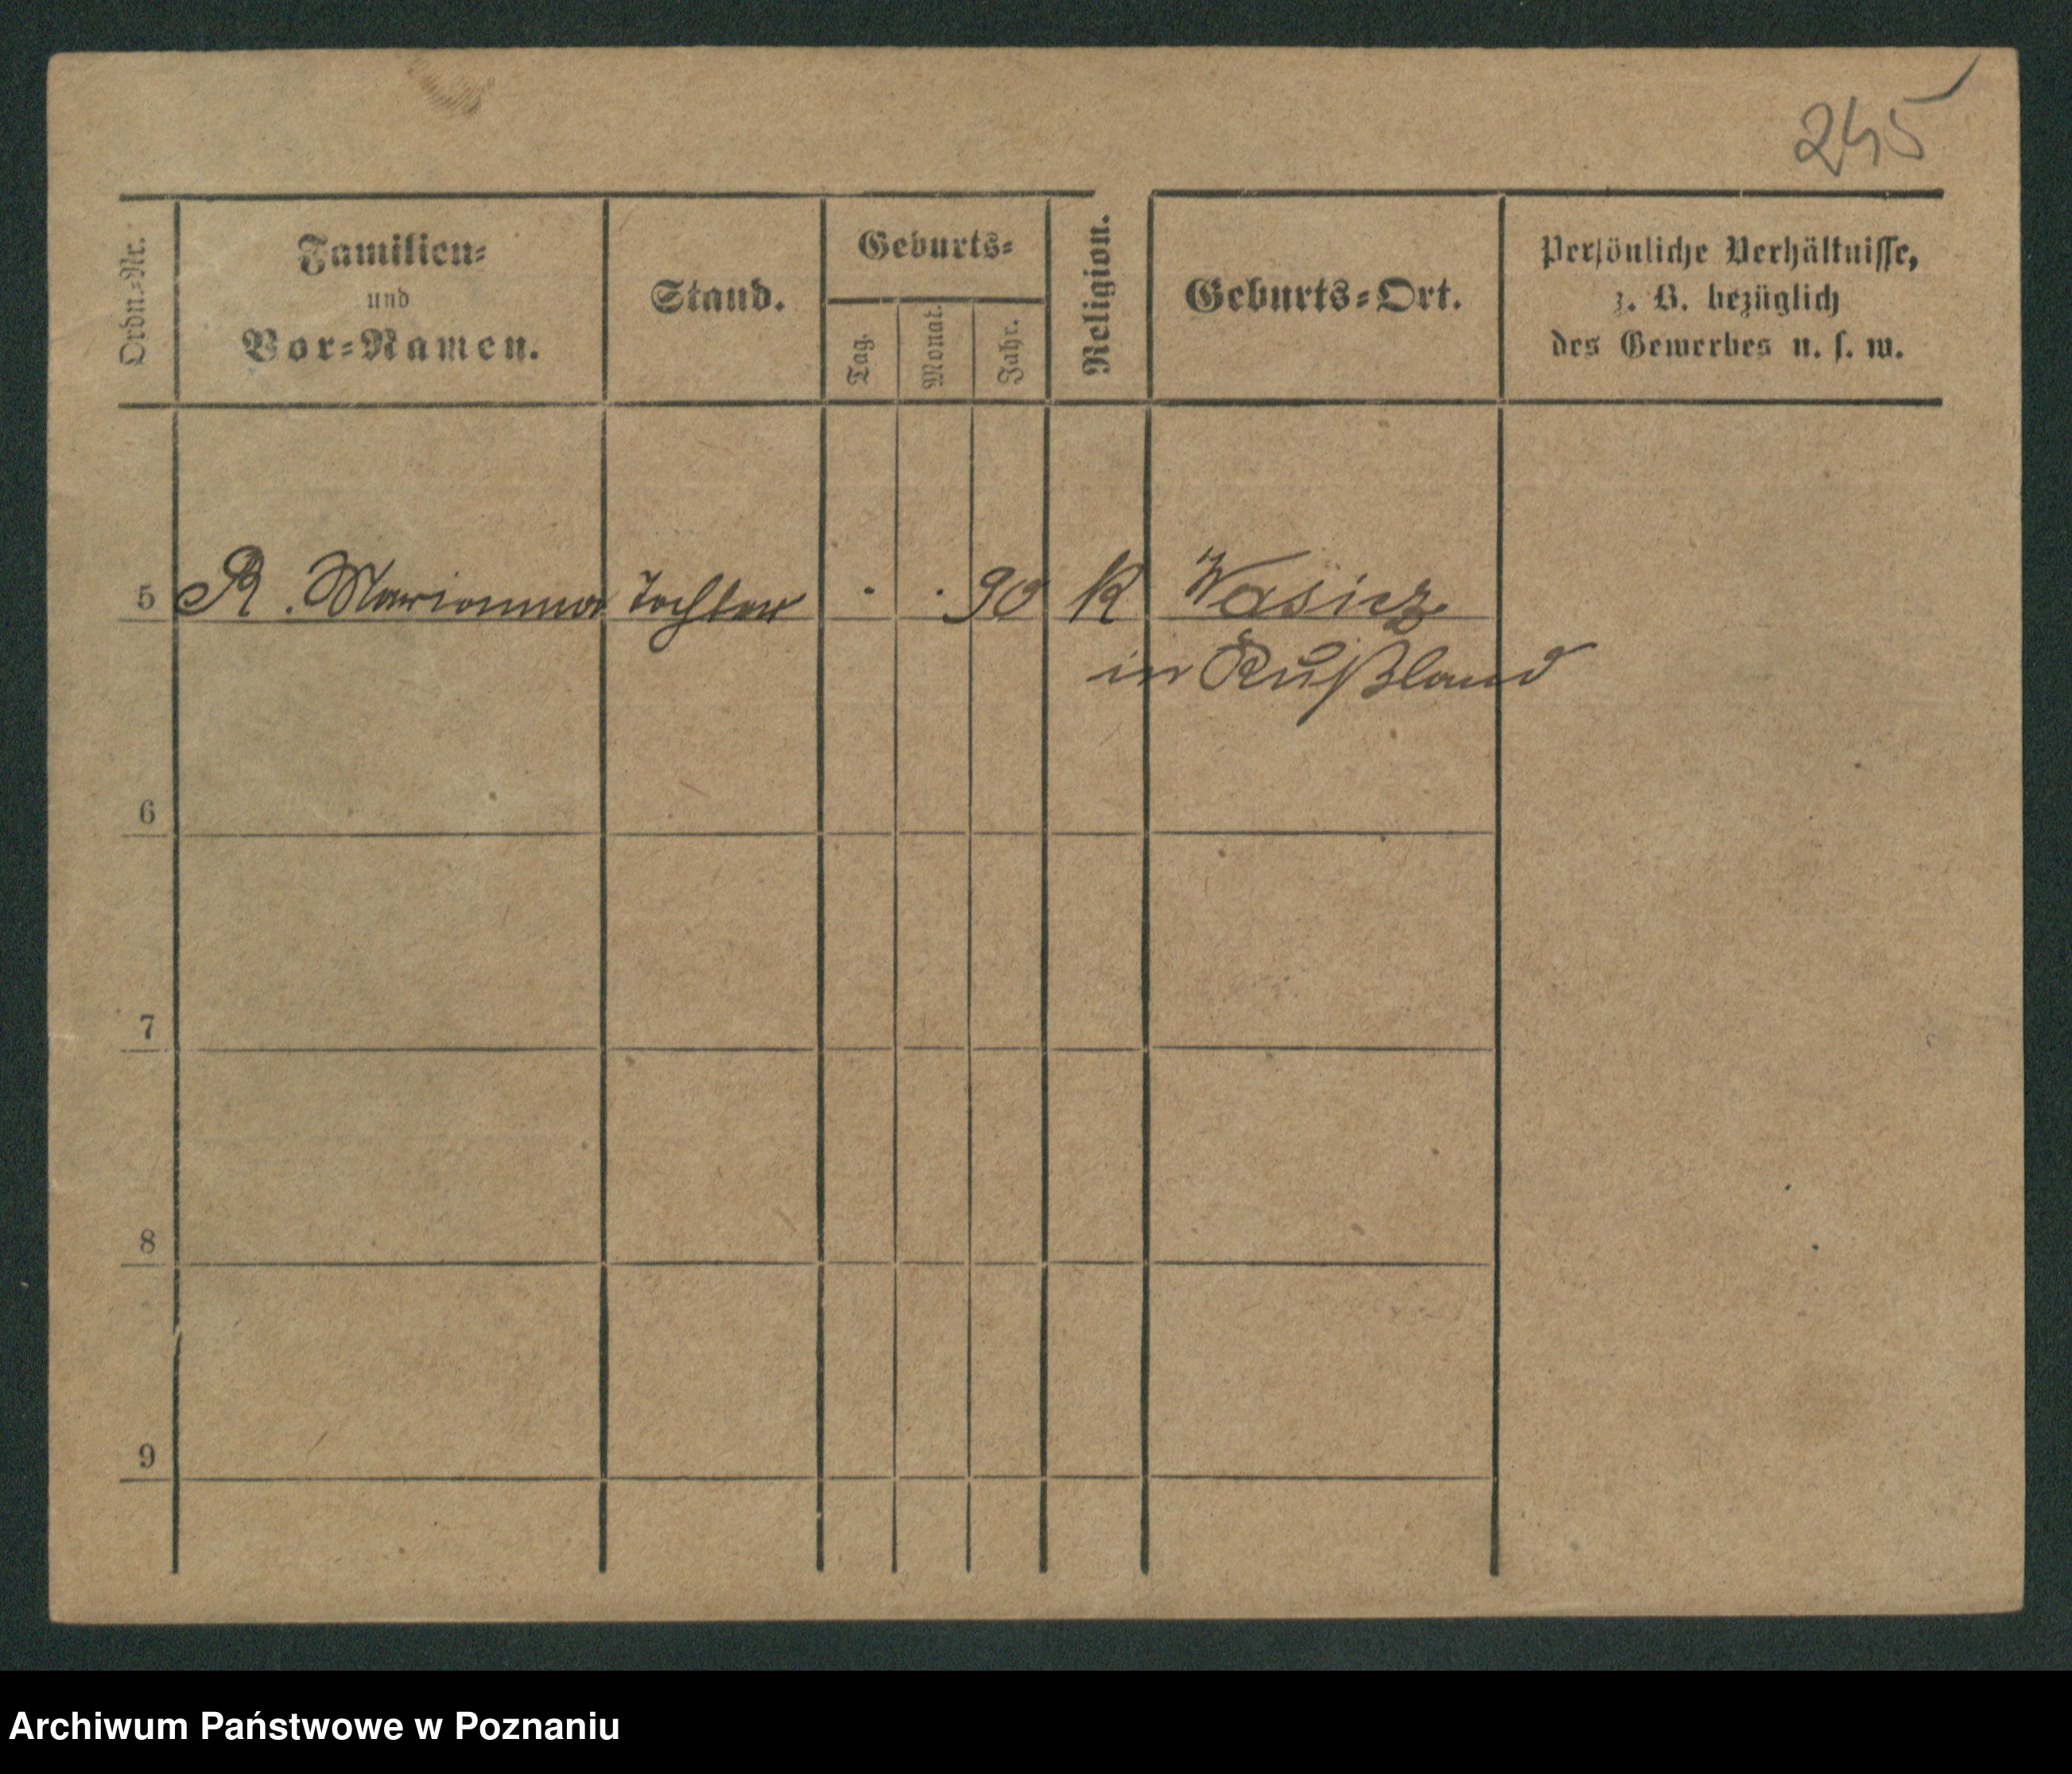 245
Ordn.-Nr.
Familien-
und
Vor-Namen.
Stand.
Geburts-
Tag.
Monat.
Jahr.
Religion.
Geburts-Ort.
Persönliche Verhältnisse,
z. B. bezüglich
des Gewerbes u. s. w.
5 R. Marianna Tochter . . 90 K Wasicz
in Rußland
6
7
8
9
Archiwum Państwowe w Poznaniu